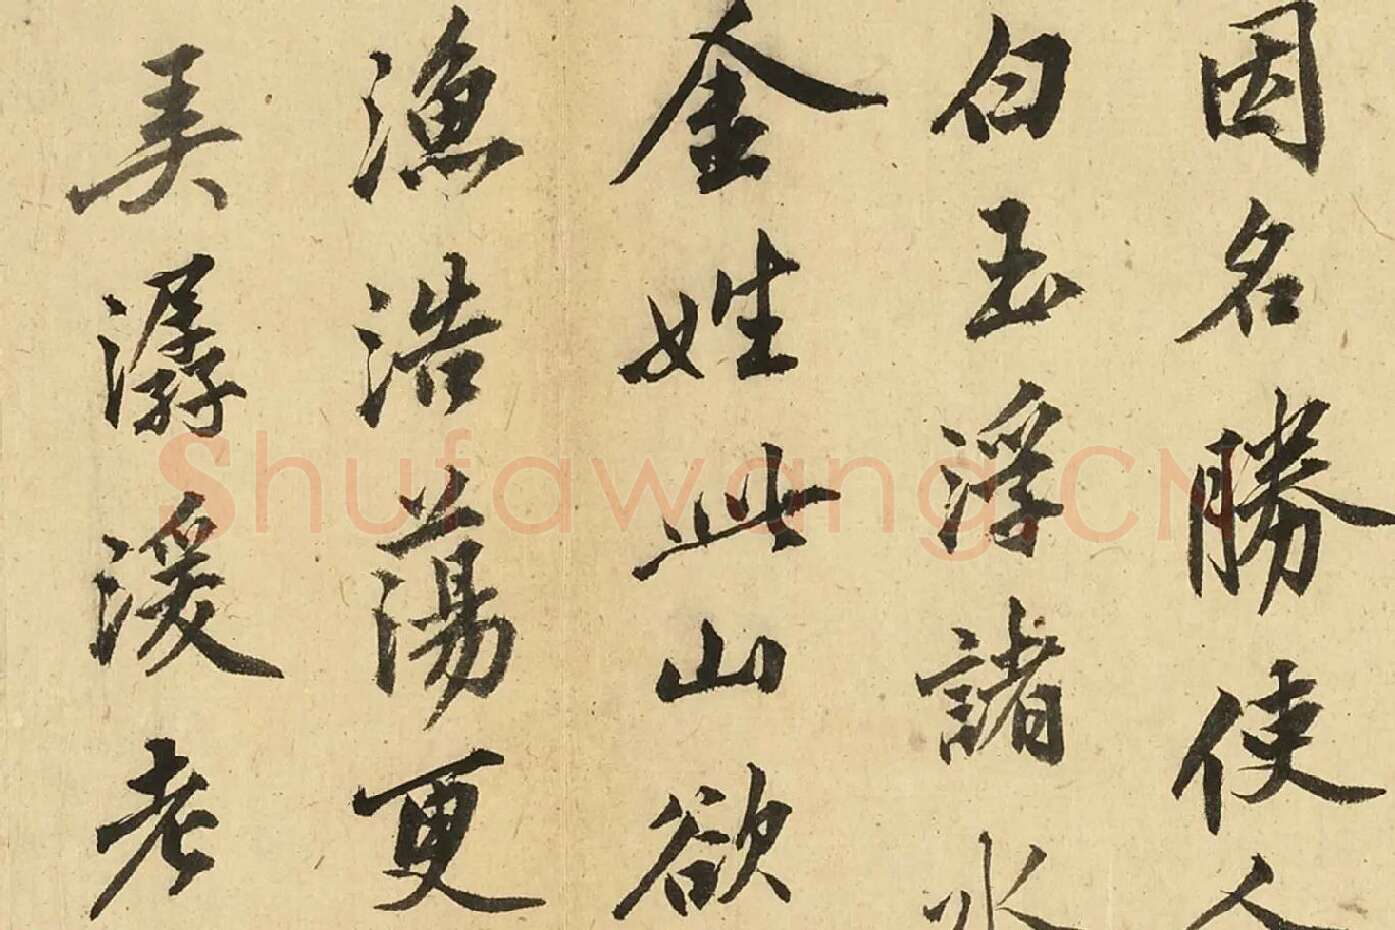 因名勝使人
白玉浮諸水
金姓此山欲
漁浩蕩更
美潺湲老
Shufawang.CN